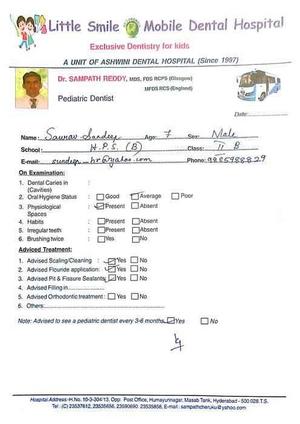 Little Smile Mobile Dental Hospital
Exclusive Dentistry for kids
A UNIT OF ASHWINI DENTAL HOSPITAL (Since 1997)
Dr. SAMPATH REDDY, MDS, FDS RCPS (Glasgow)
MFDS RCS (England)
Pediatric Dentist
Date:
Name: Saurav Sandeep Age: 7 Sex: Male
School: H.P.S. (B) Class: II B
E-mail: sundeep_hr@yahoo.com Phone: 9885988829
On Examination:
1. Dental Caries in :
(Cavities)
2. Oral Hygiene Status : Good Average Poor
3. Physiological : Present Absent
Spaces
4. Habits : Present Absent
5. Irregular teeth : Present Absent
6. Brushing twice : Yes No
Adviced Treatment:
1. Advised Scaling/Cleaning : Yes No
2. Advised Flouride application: Yes No
3. Advised Pit & Fissure Sealants: Yes No
4. Advised Filling in
5. Advised Orthodontic treatment : Yes No
6. Others:
Note: Advised to see a pediatric dentist every 3-6 months. Yes No
Hospital Address: H.No. 10-3-304/13, Opp. Post Office, Humayunnagar, Masab Tank, Hyderabad - 500 028 T.S.
Tel: (C) 23537612, 23535656, 23590690 23535856, E-mail : sampathcheruku@yahoo.com